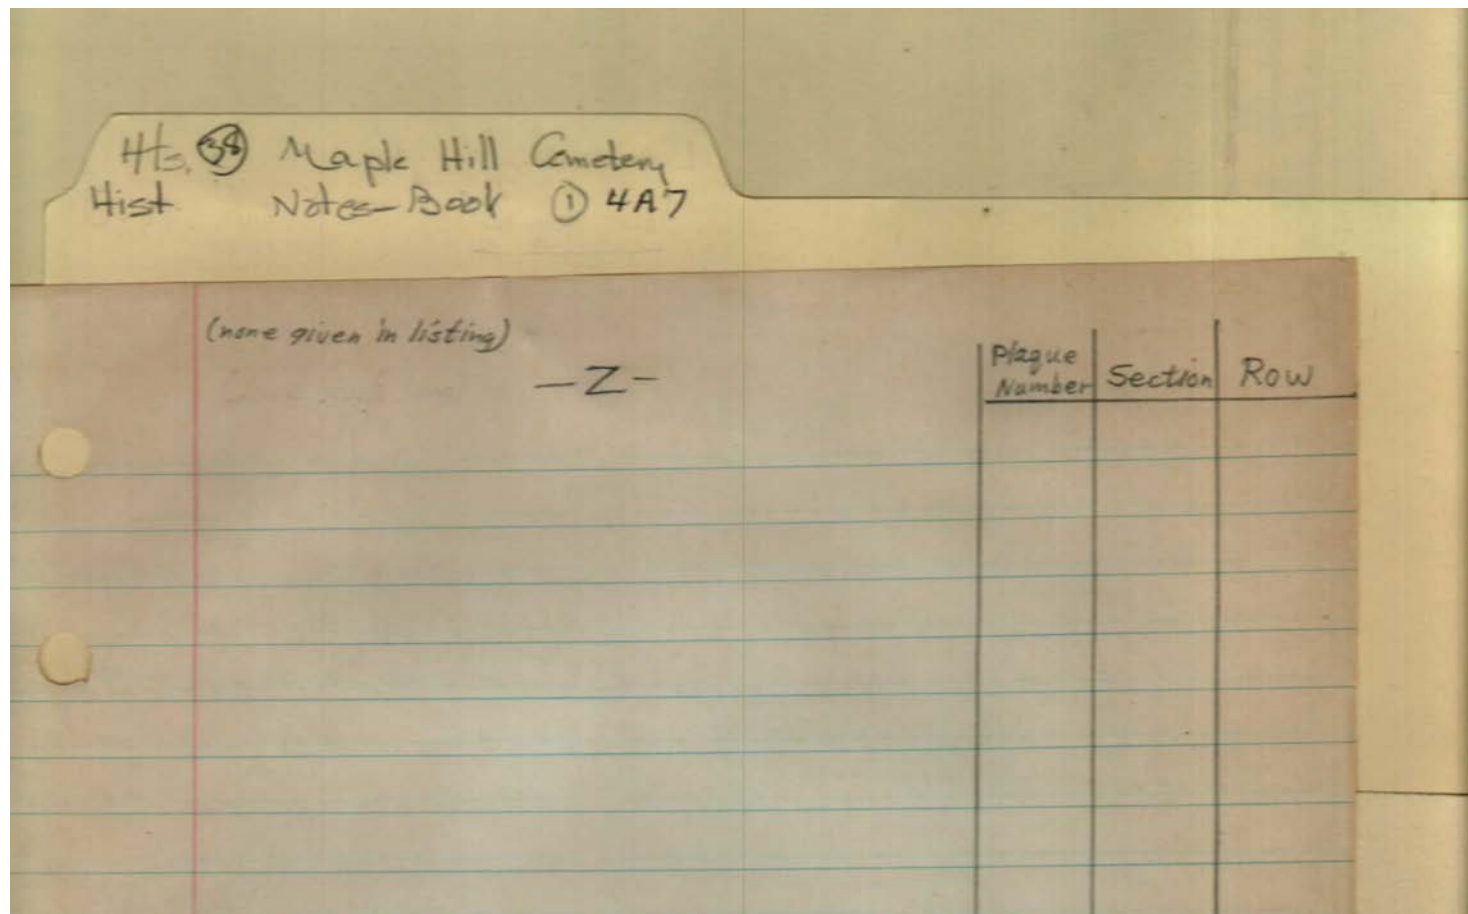 Hts. 38 Maple Hill Cemetery
Hist Notes-Book 1 4A7
(none given in listing)
-Z-
Plaque Number Section Row